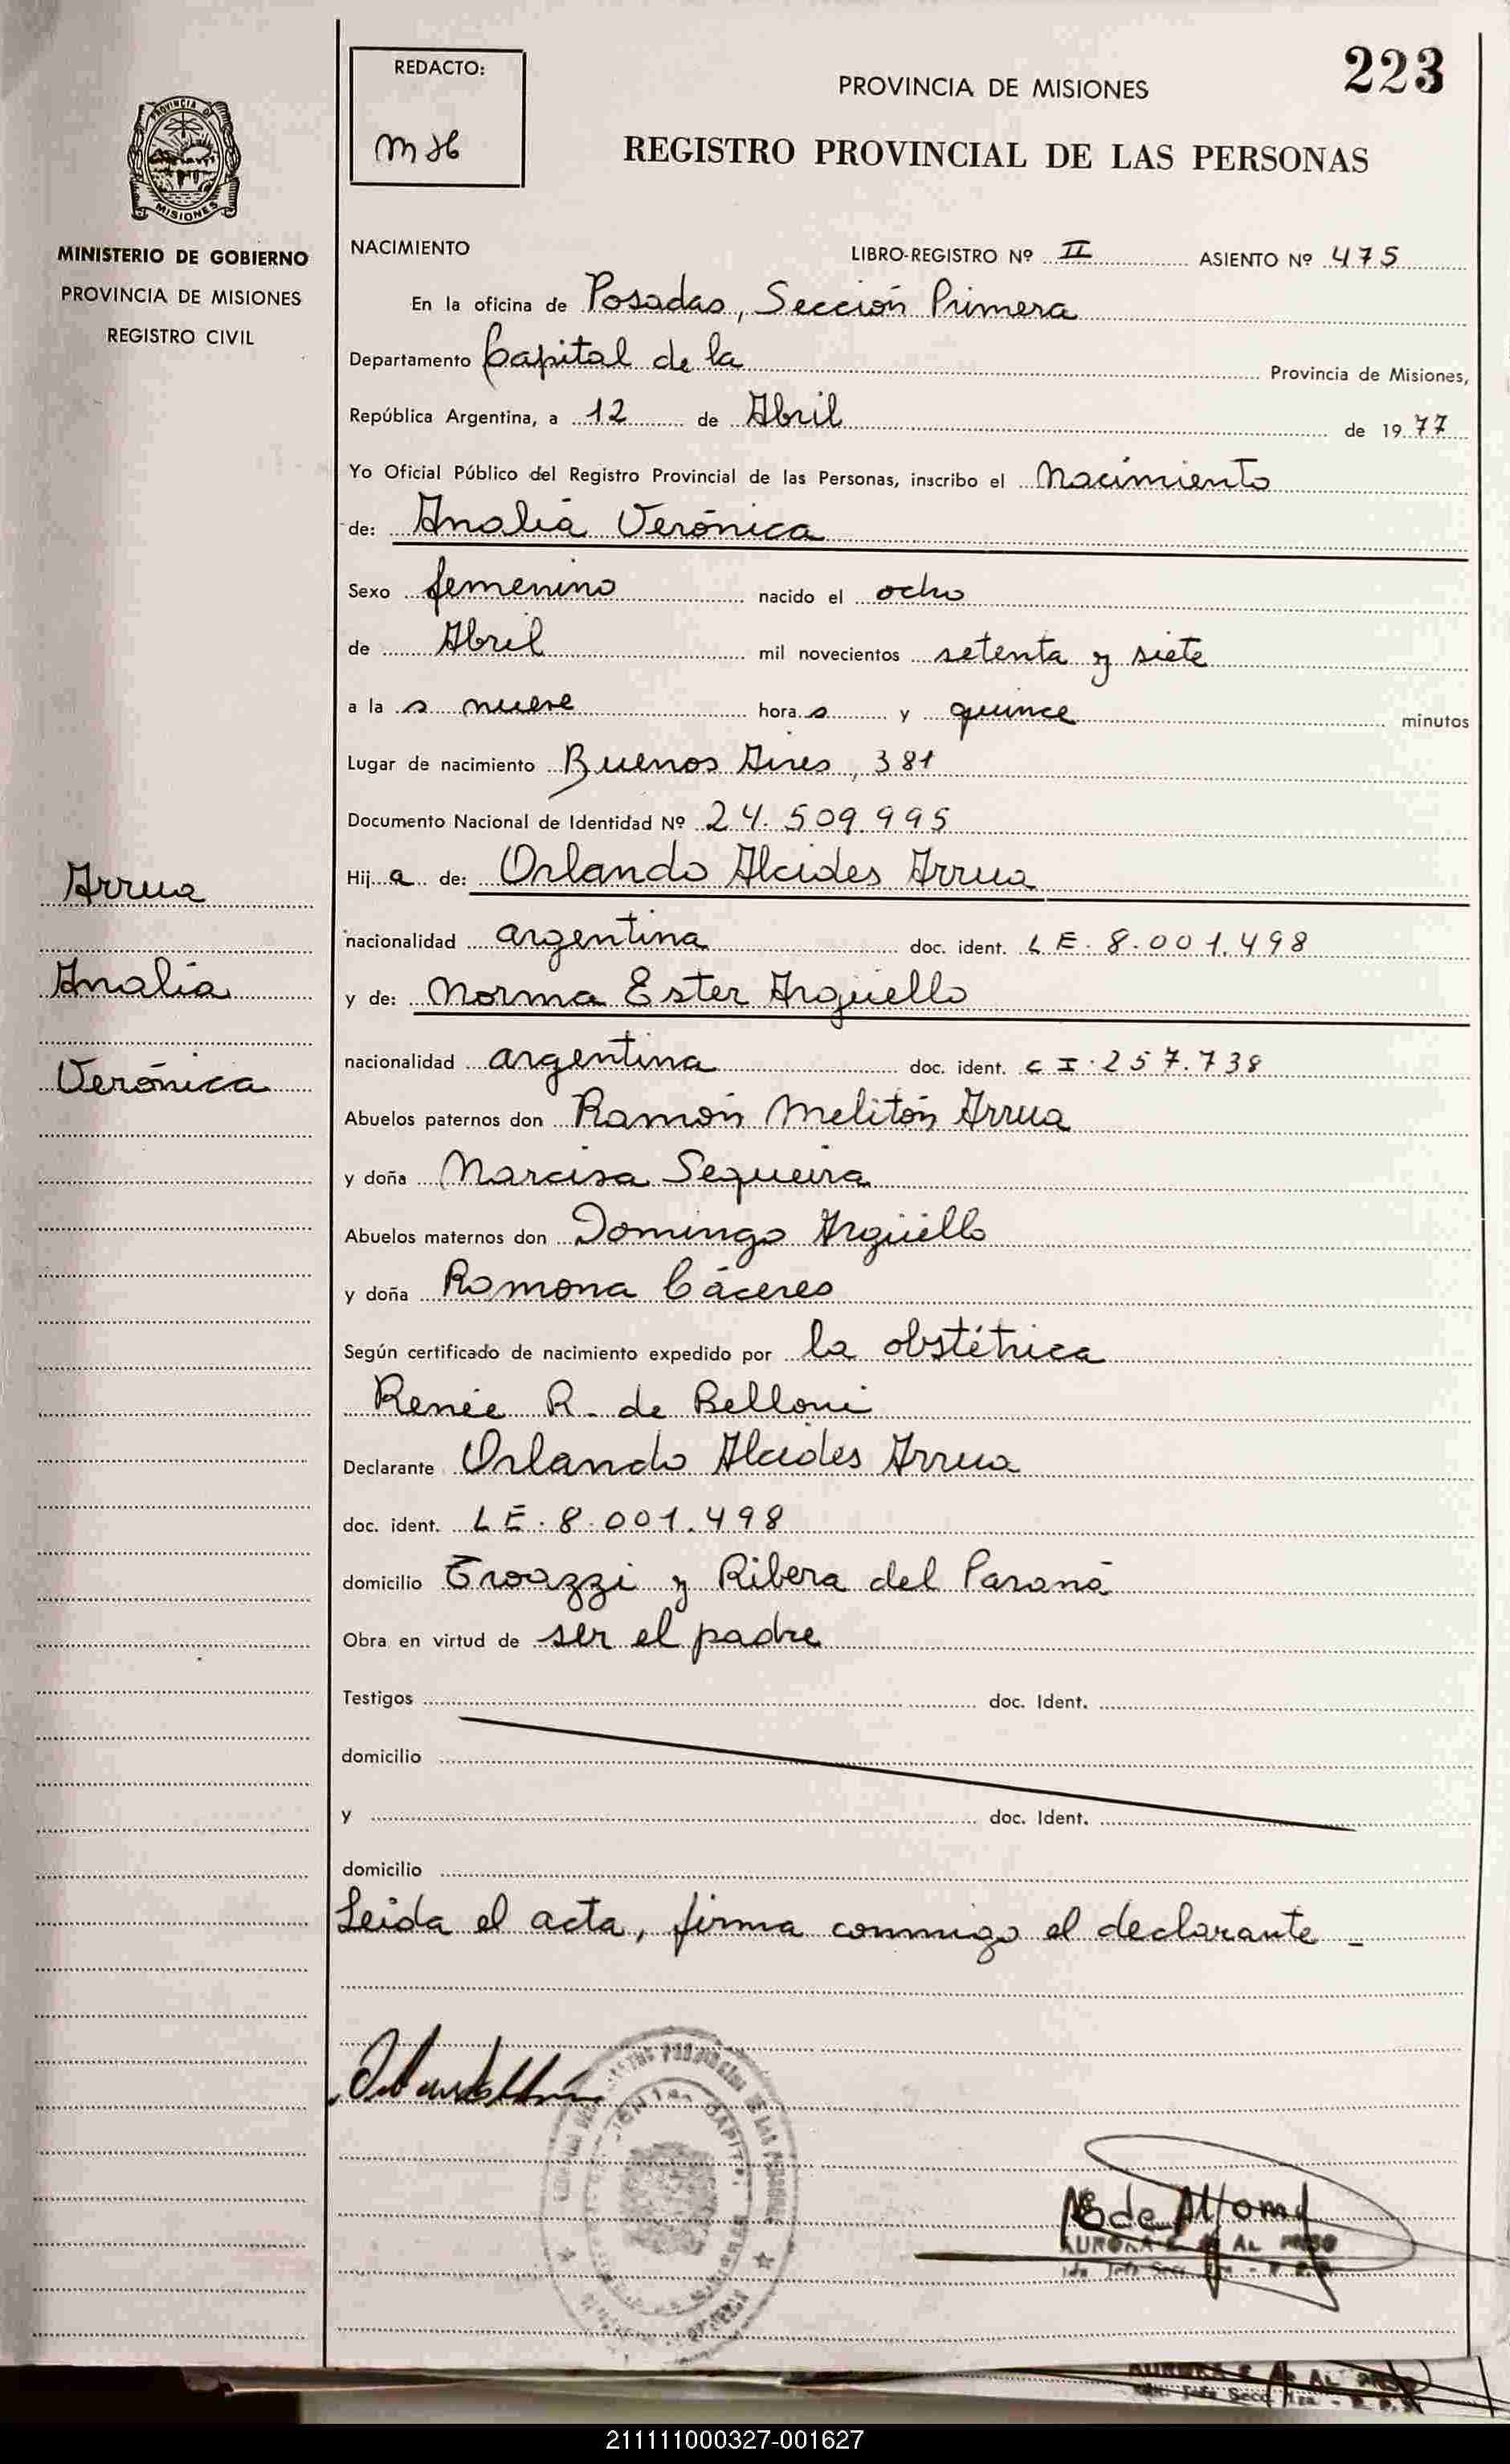 223
REDACTO:
MH
PROVINCIA DE MISIONES
REGISTRO PROVINCIAL DE LAS PERSONAS
PROVINCIA DE
MISIONES
MINISTERIO DE GOBIERNO
PROVINCIA DE MISIONES
REGISTRO CIVIL
NACIMIENTO LIBRO-REGISTRO Nº II ASIENTO Nº 475
En la oficina de Posadas, Sección Primera
Departamento Capital de la Provincia de Misiones,
República Argentina, a 12 de Abril de 1977
Yo Oficial Público del Registro Provincial de las Personas, inscribo el Nacimiento
de: Analía Verónica
Sexo femenino nacido el ocho
de Abril mil novecientos setenta y siete
a las nueve horas y quince minutos
Lugar de nacimiento Buenos Aires, 381
Documento Nacional de Identidad Nº 24.509.995
Hija de: Orlando Alcides Arrua
nacionalidad argentina doc. ident. LE. 8.001.498
y de: Norma Ester Argüello
nacionalidad argentina doc. ident. CI. 257.738
Abuelos paternos don Ramón Melitón Arrua
y doña Narcisa Sequeira
Abuelos maternos don Domingo Argüello
y doña Ramona Cáceres
Según certificado de nacimiento expedido por la obstétrica
Renée R. de Belloni
Declarante Orlando Alcides Arrua
doc. ident. LE. 8.001.498
domicilio y Ribera del Paraná
Obra en virtud de ser el padre
Testigos doc. Ident.
domicilio
y doc. Ident.
domicilio
Leida el acta, firma conmigo el declarante -
Arrua
Analía
Verónica
AURORA E. AL
AURORA E. AL
211111000327-001627